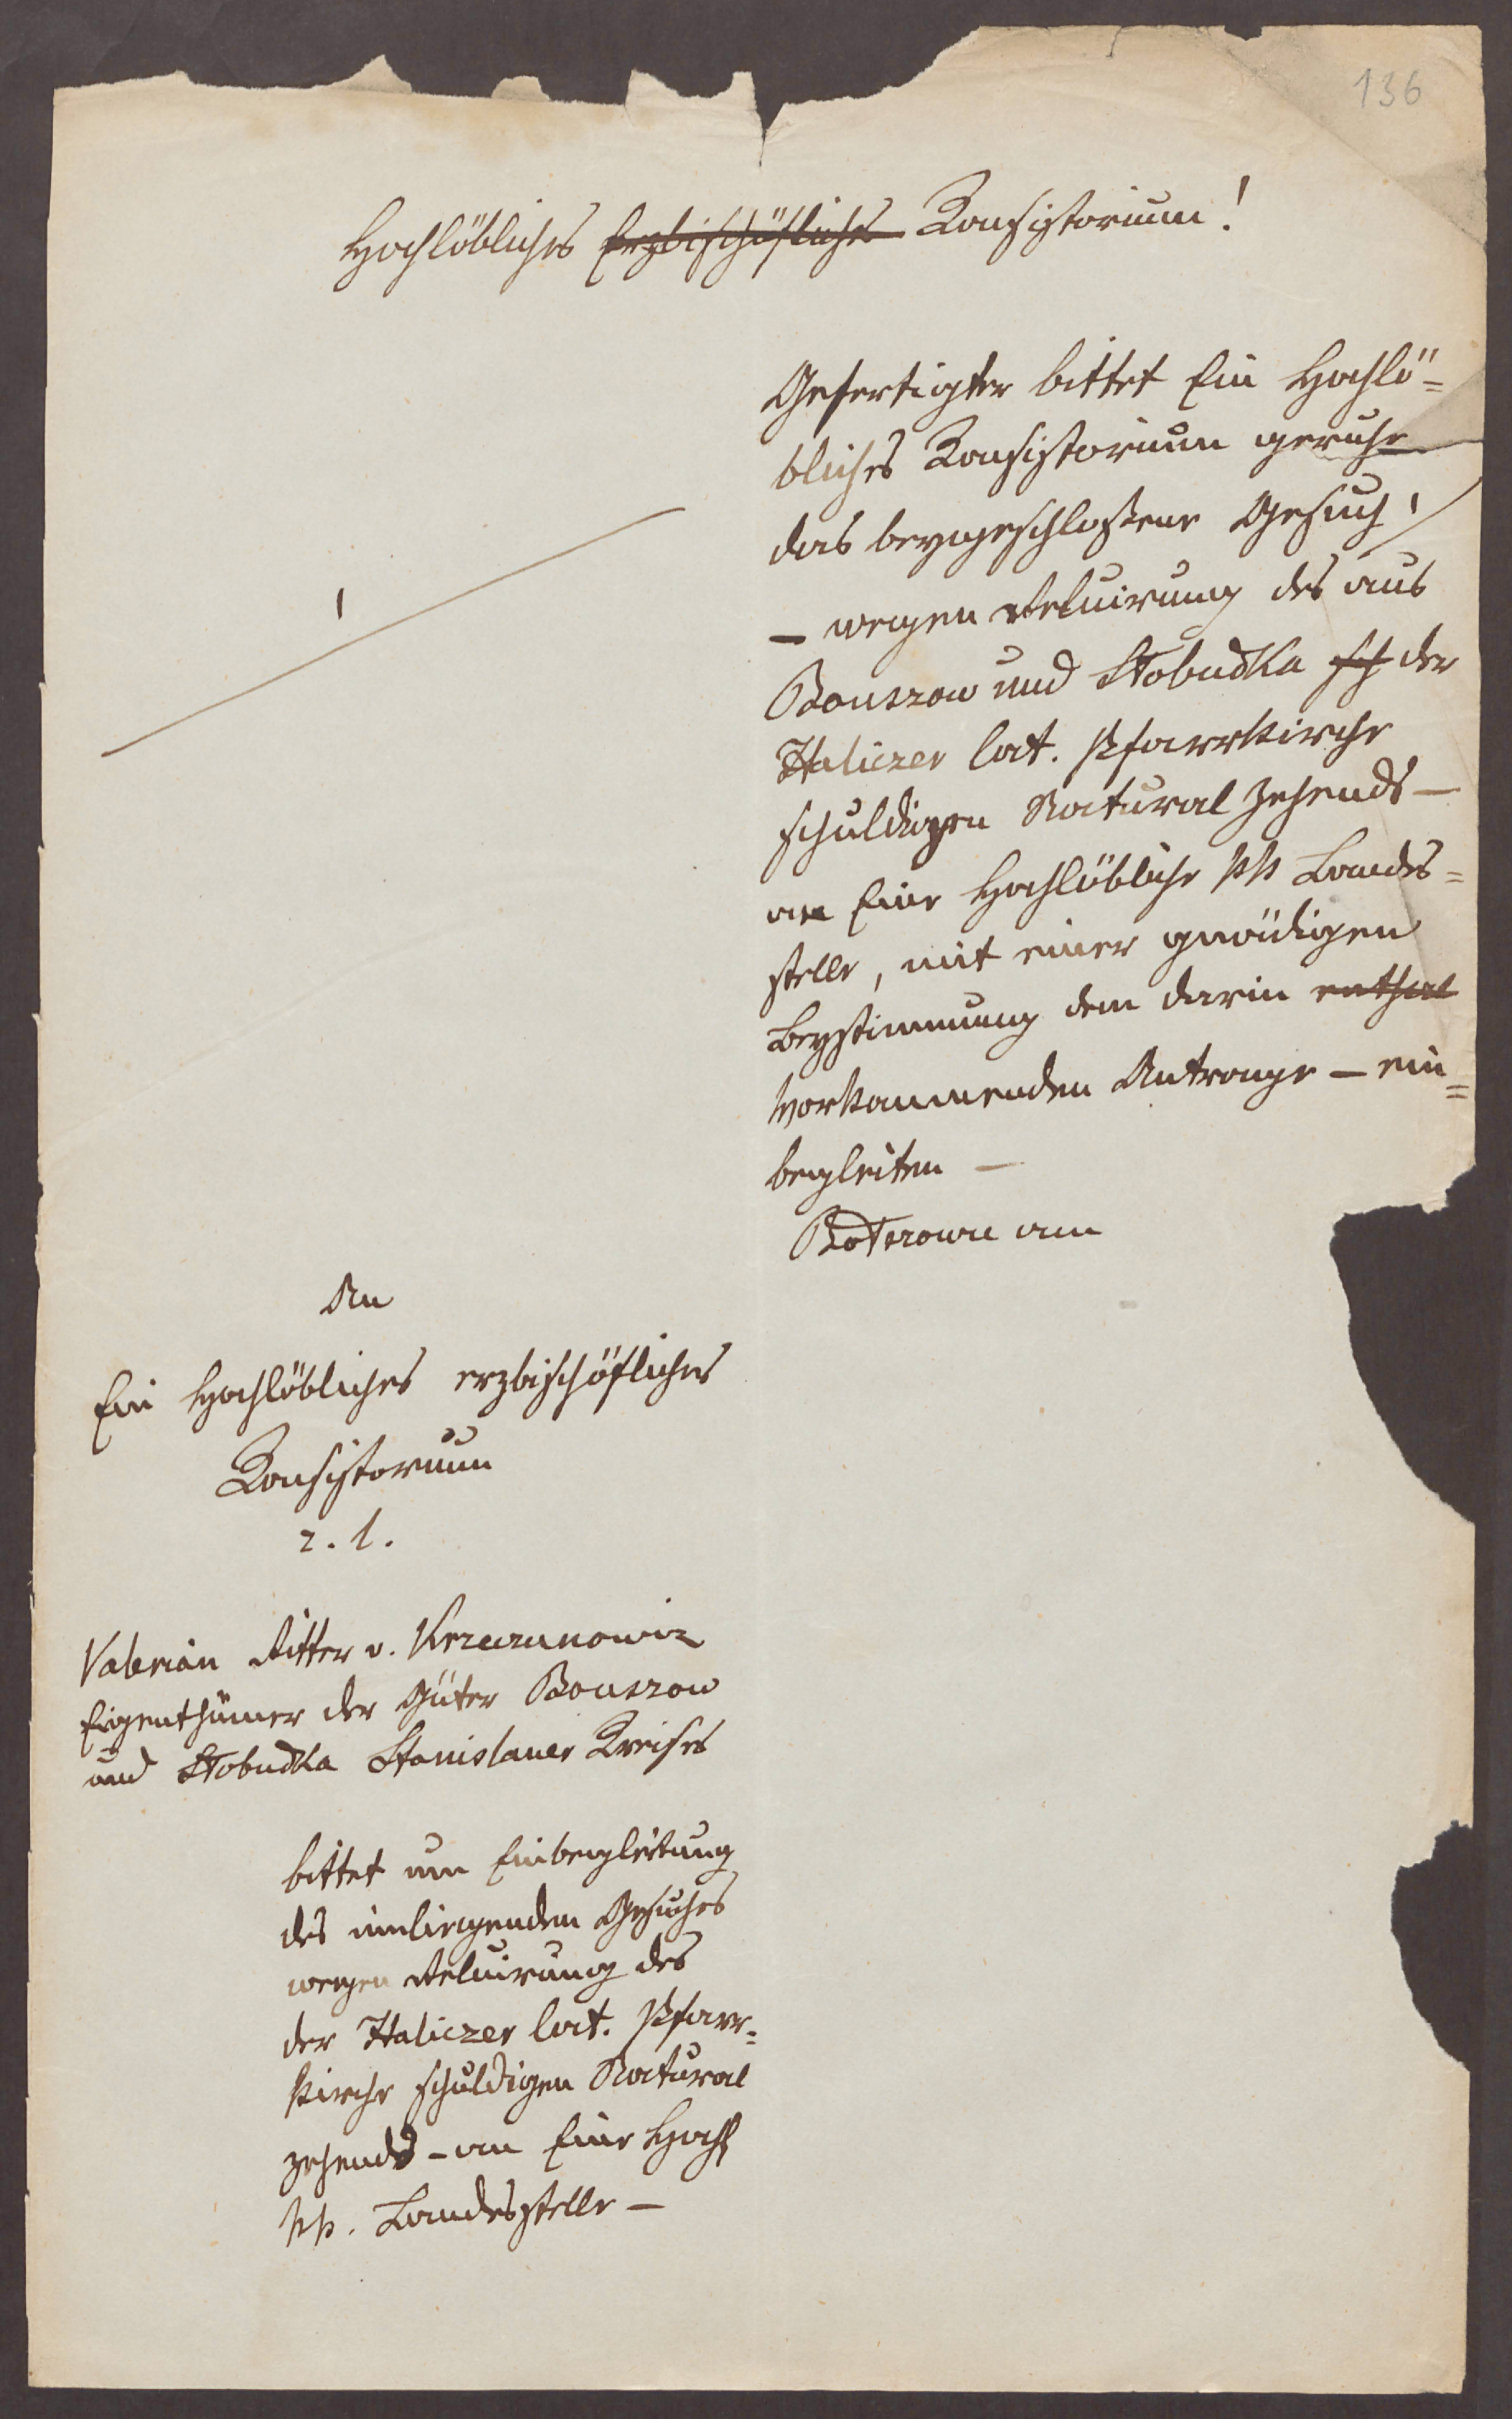 136
Hochlöbliches Erzbischöfliches Konsistorium!
Gefertigter bittet Ein Hochlö=
bliches Konsistorium geruhe
das beygeschlossene Gesuch 1/
– wegen Reluirung des aus
Bouszow und Slobudka sch der
Haliczer lat. Pfarrkirche
schuldigen Natural Zehends –
an Eine Hochlöbliche kk Landes=
stelle, mit einer gnädigen
Beystimmung dem darin enthal
vorkommenden Antrage – ein=
begleiten –
am
1
An
Ein Hochlöbliches erzbischöfliches
Konsistorium
r. l.
Valerian Ritter v. Krzeczunowicz
Eigenthümer der Güter Bouszow
und Slobudka Stanislauer Kreises
bittet um Einbegleitung
des innliegenden Gesuches
wegen Reluirung des
der Haliczer lat. Pfarr=
kirche schuldigen Natural
zehends – an Eine Hochl
kk. Landesstelle –